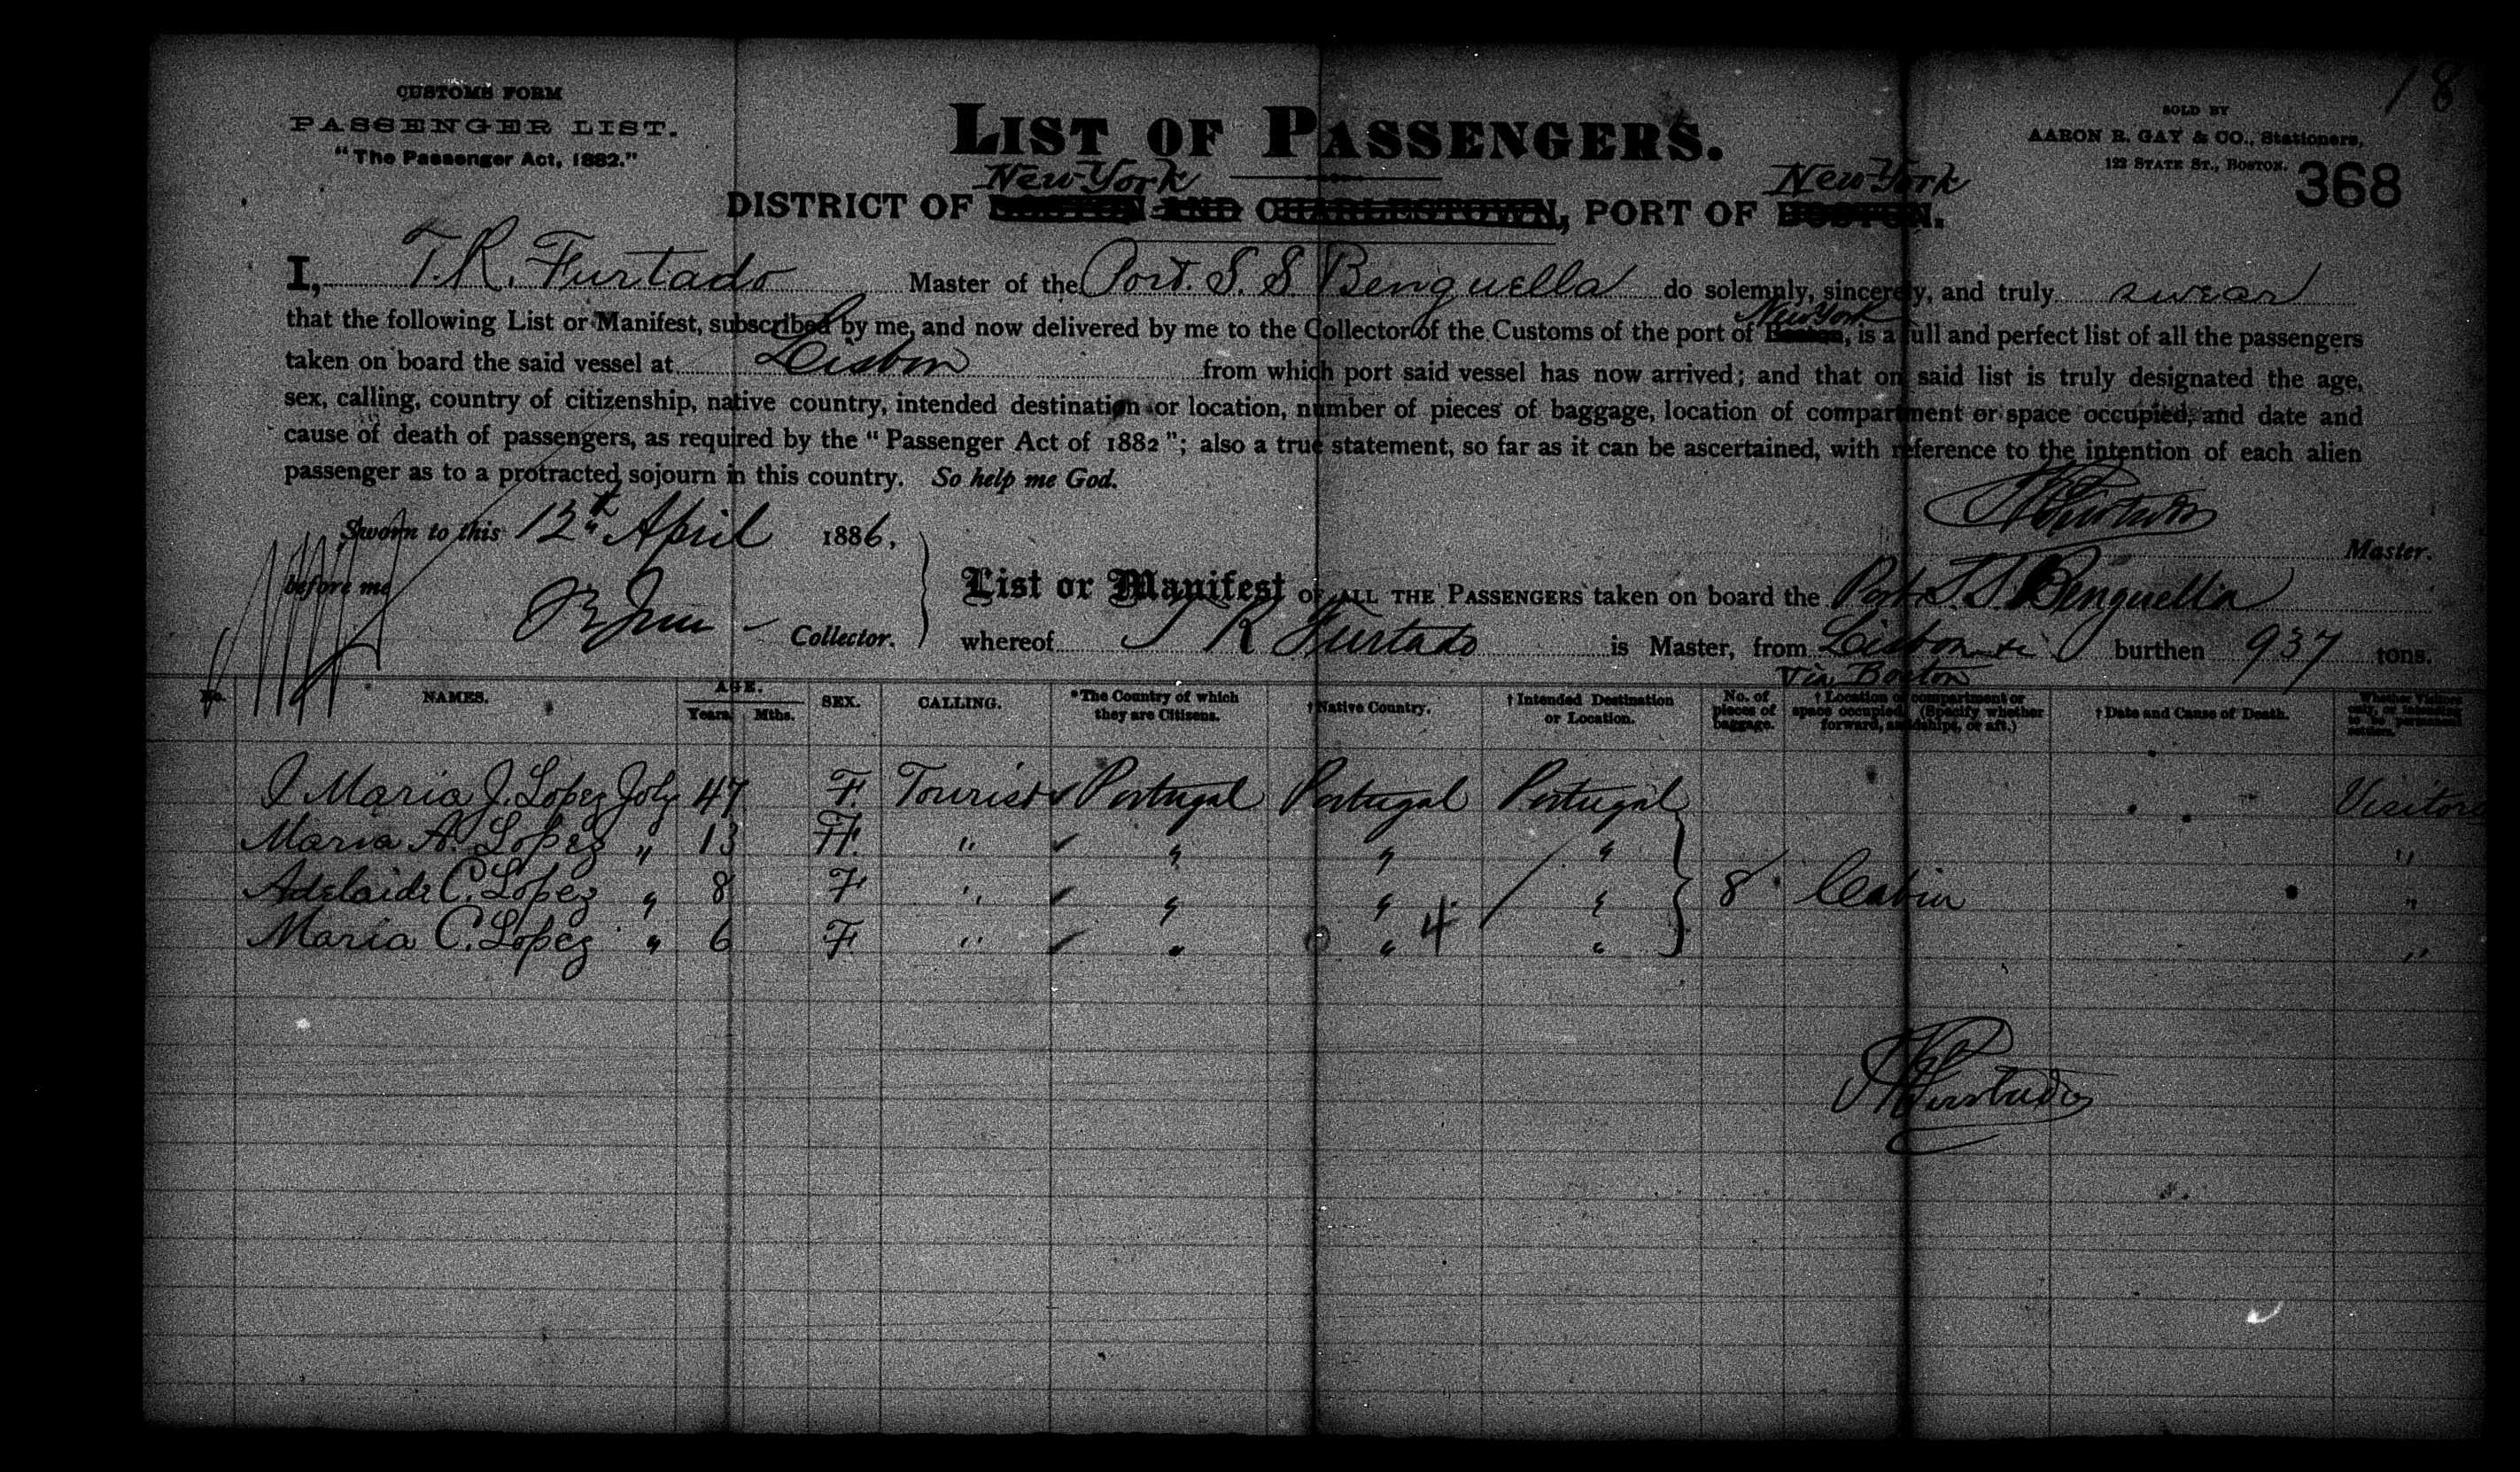 18
CUSTOMS FORM
PASSENGER LIST.
"The Passenger Act, 1882."
LIST OF PASSENGERS.
SOLD BY
AARON R. GAY & CO., Stationers,
122 STATE ST., BOSTON.
368
New-York New-York
DISTRICT OF BOSTON AND CHARLESTOWN, PORT OF BOSTON.
I, T. R. Furtado Master of the Port. S. S Benguella do solemnly, sincerely, and truly swear
that the following List or Manifest, subscribed by me, and now delivered by me to the Collector of the Customs of the port of Boston, New York is a full and perfect list of all the passengers
taken on board the said vessel at Lisbon from which port said vessel has now arrived; and that on said list is truly designated the age,
sex, calling, country of citizenship, native country, intended destination or location, number of pieces of baggage, location of compartment or space occupied, and date and
cause of death of passengers, as required by the "Passenger Act of 1882"; also a true statement, so far as it can be ascertained, with reference to the intention of each alien
passenger as to a protracted sojourn in this country. So help me God.
T R Furtado
Master.
Sworn to this 12th April 1886,
before me
Collector.
List or Manifest OF ALL THE PASSENGERS taken on board the Port. S. S. Benguella
whereof T R Furtado is Master, from Lisbon burthen 937 tons.
Via Boston
No. NAMES. AGE. Years. Mths. SEX. CALLING. *The Country of which they are Citizens. †Native Country. †Intended Destination or Location. No. of pieces of baggage. †Location of compartment or space occupied. (Specify whether forward, amidships, or aft.) †Date and Cause of Death.
Maria J. Lopez Joly 47 F. Tourist Portugal Portugal Portugal Visitors
Maria A. Lopez " 13 F. " " " " "
Adelaide C. Lopez " 8 F " " " " 8 Cabin "
Maria C. Lopez " 6 F. " " " 4 " "
T R Furtado